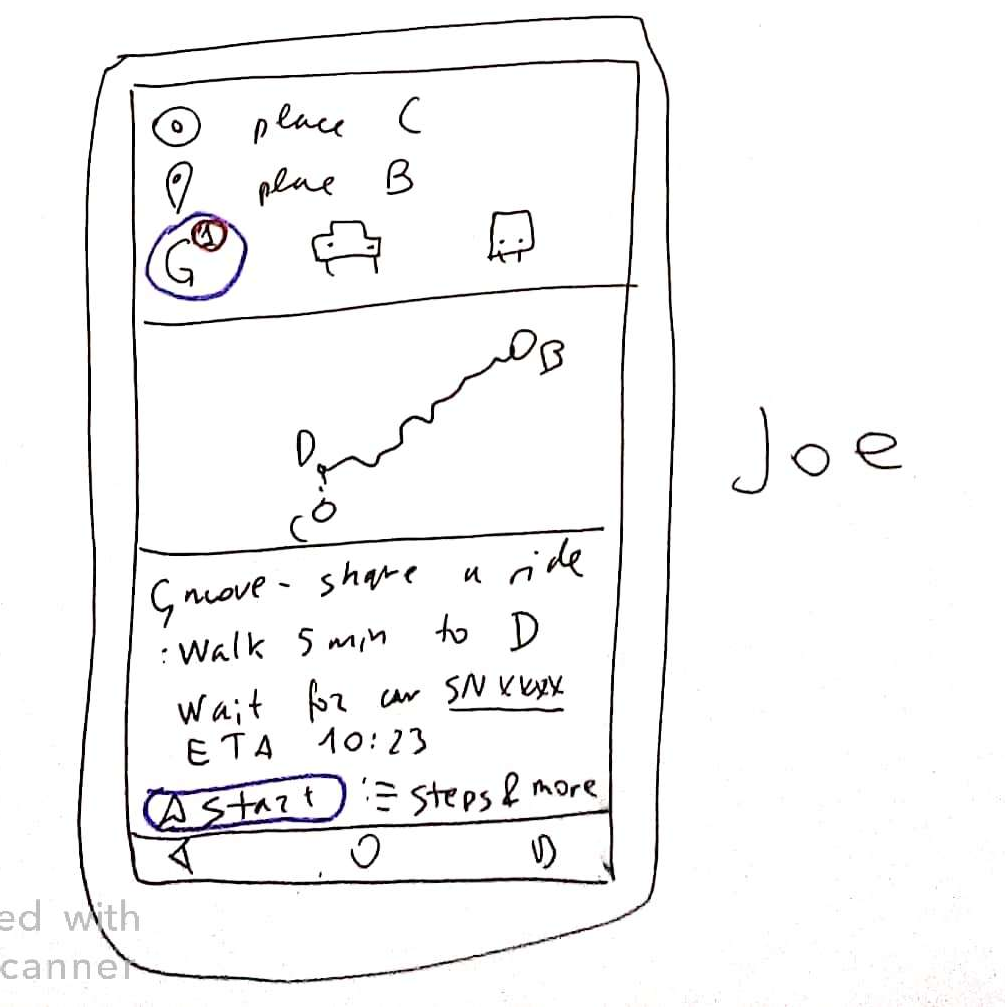 place C
plae B
G 1
B
D
C
Joe
Gmove - share a ride
: Walk 5 min to D
Wait for car SN xxxx
ETA 10:23
Start steps & more
ed with
canner